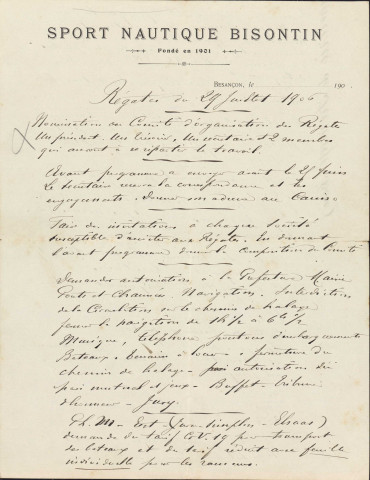 SPORT NAUTIQUE BISONTIN
Fondé en 1901
BESANÇON, LE 190
Régates du 29 Juillet 1906
Nomination du Comité d'organisation des Régates
Un président. Un trésorier, Un secrétaire et 2 membres
qui auront à se répartir le travail.
Avant programme à envoyer avant le 25 Juin
Le secrétaire aura la correspondance et les
engagements. Donner son adresse au Casino
Faire des invitations à chaque Société
susceptible d'assister aux Régates. En donnant
l'avant programme donner la composition du Comité
Demander autorisation à la Préfecture Mairie
Ponts et Chaussées. Navigation. Interdiction
de la Circulation sur le chemin de halage
pour la navigation de 1h 1/2 à 6h 1/2
Musique, téléphone, pontons d'embarquement
Bateaux - terrain à louer - fermeture du
chemin de halage - autorisation du
pari mutuel et jeux - Buffet - Tribune
d'honneur - Jury.
P.L.M - Est -
demande du tarif G.V. 19 pour transport
des bateaux et du tarif réduit avec feuille
individuelle pour les rameurs.